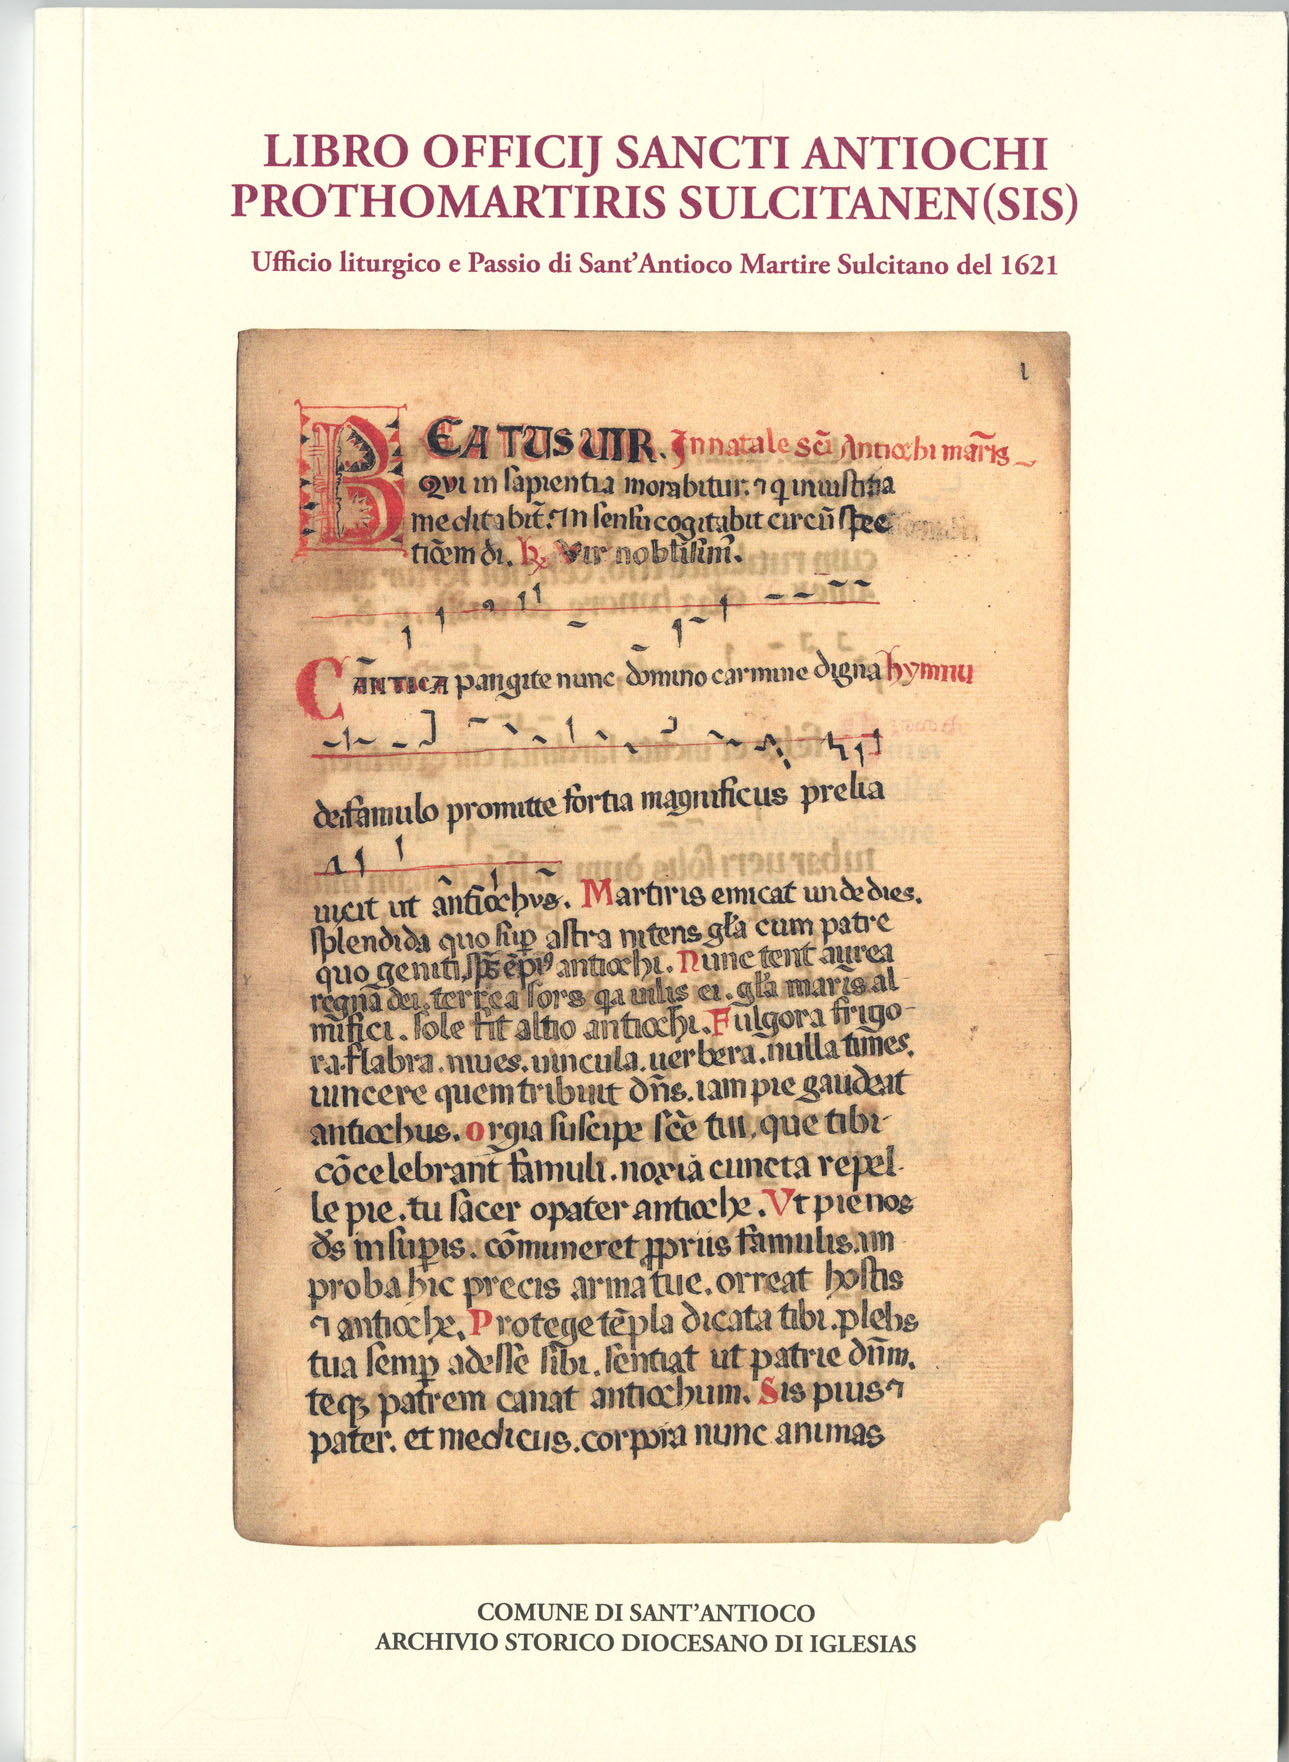 LIBRO OFFICIJ SANCTI ANTIOCHI
PROTHOMARTIRIS SULCITANEN(SIS)
Ufficio liturgico e Passio di Sant'Antioco Martire Sulcitano del 1621
1
BEATUS VIR. In natale scī Antiochi mar̄is
Qui in sapientia morabitur. ⁊ q̇ in iustitia
meditabit̄. In sensu cogitabit circū spec
tiōem di. ℟ Vir nobilissim̄.
CANTICA pangite nunc dōmino carmine digna hymnū
dei famulo promitte fortia magnificus prelia
uicit ut antiochus. Martiris emicat unde dies.
splendida quo sup̄ astra nitens gl̄a cum patre
quo geniti, sp̄s ēpi⁹ antiochi. Nunc tent aurea
regna dei. terrea sors q̇a uilis ei. gl̄a mar̄is al
mifici. sole fit altio antiochi. Fulgora frigo-
ra. flabra. niues. uincula. uerbera. nulla timēs.
uincere quem tribuit dn̄s. iam pie gaudeat
antiochus. Orgia suscipe scē tui, que tibi
cōcelebrant̄ famuli. noxia cuncta repel-
le pie. tu sacer o pater antioche. Ut pie nos
ds̄ in sup̄is. cōmuneret p̱priis famulis. im
proba hic precis arma tue. orreat hostis
⁊ antioche. Protege tēpla dicata tibi. plebs
tua semp̄ adesse sibi. sentiat ut patrie dn̄m.
teqȝ patrem canat antiochum. Sis pius ⁊
pater. et medicus. corpora nunc animas
COMUNE DI SANT'ANTIOCO
ARCHIVIO STORICO DIOCESANO DI IGLESIAS